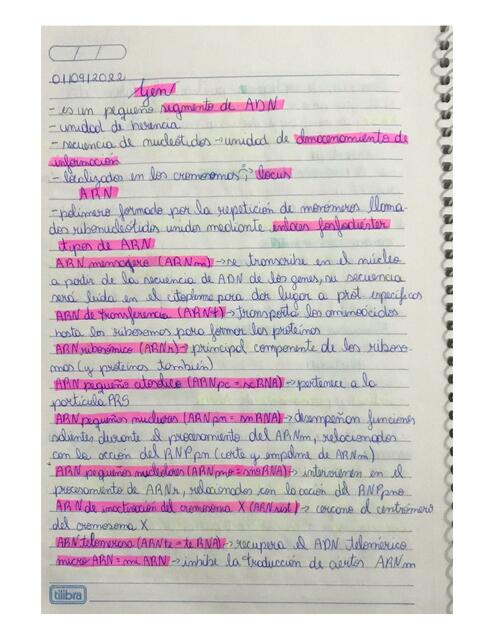 01/09/2022
Gen
- es un pequeño segmento de ADN
- unidad de herencia
- secuencia de nucleótidos → unidad de almacenamiento de
información
- localizados en los cromosomas; locus
ARN
- polímero formado por la repetición de monómeros llama-
dos ribonucleótidos unidos mediante enlaces fosfodiéster
tipos de ARN
ARN mensajero (ARNm) → se transcribe en el núcleo
a partir de la secuencia de ADN de los genes, su secuencia
será leída en el citoplasma para dar lugar a prot específicas
ARN de transferencia (ARNt) → transporta los aminoácidos
hasta los ribosomas para formar las proteínas
ARN ribosómico (ARNr) → principal componente de los riboso-
mas (y proteínas también)
ARN pequeño citosólico (ARNpc = scRNA) → pertenece a la
partícula PRS
ARN pequeños nucleares (ARNpn = snRNA) → desempeñan funciones
salientes durante el procesamiento del ARNm, relacionados
con la acción del RNPpn (corte y empalme de ARNm)
ARN pequeños nucleolares (ARNpno = snoRNA) → intervienen en el
procesamiento de ARNr, relacionados con la acción del RNPpno
ARN de inactivación del cromosoma X (ARNxist) → cercano al centrómero
del cromosoma X
ARN telomerasa (ARNte = teRNA) → recupera el ADN telomérico
micro ARN = mi ARN → inhibe la traducción de ciertos ARNm
tilibra